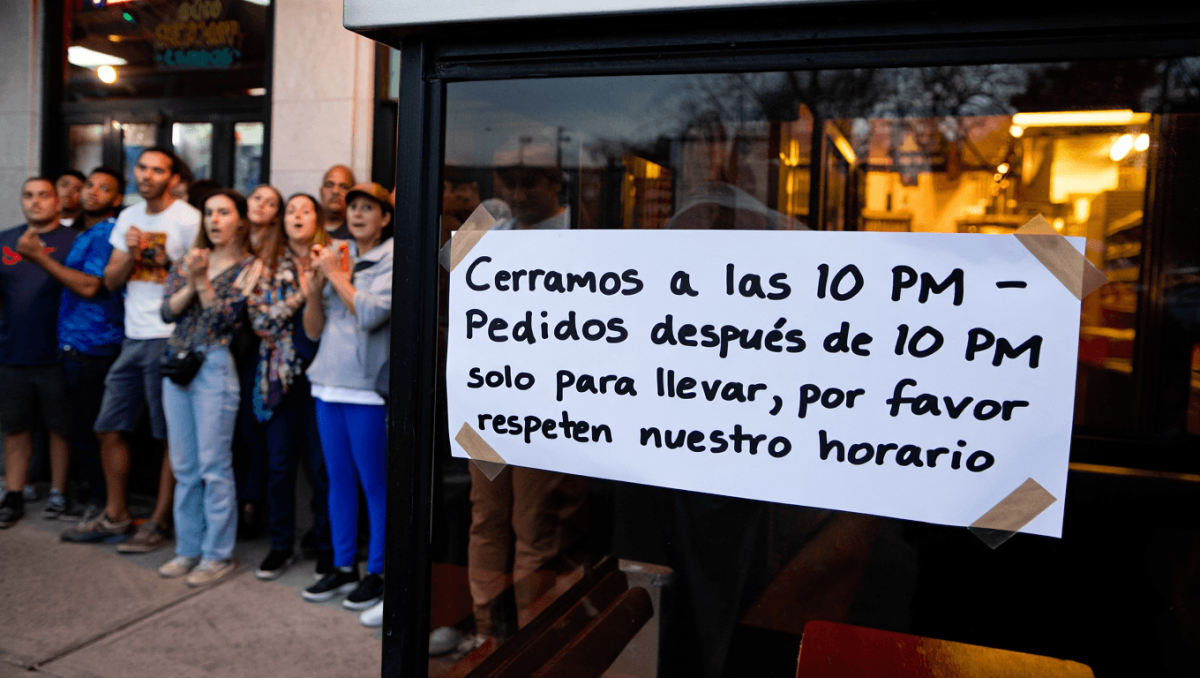 Cerramos a las 10 PM –
Pedidos después de 10 PM
solo para llevar, por favor
respeten nuestro horario